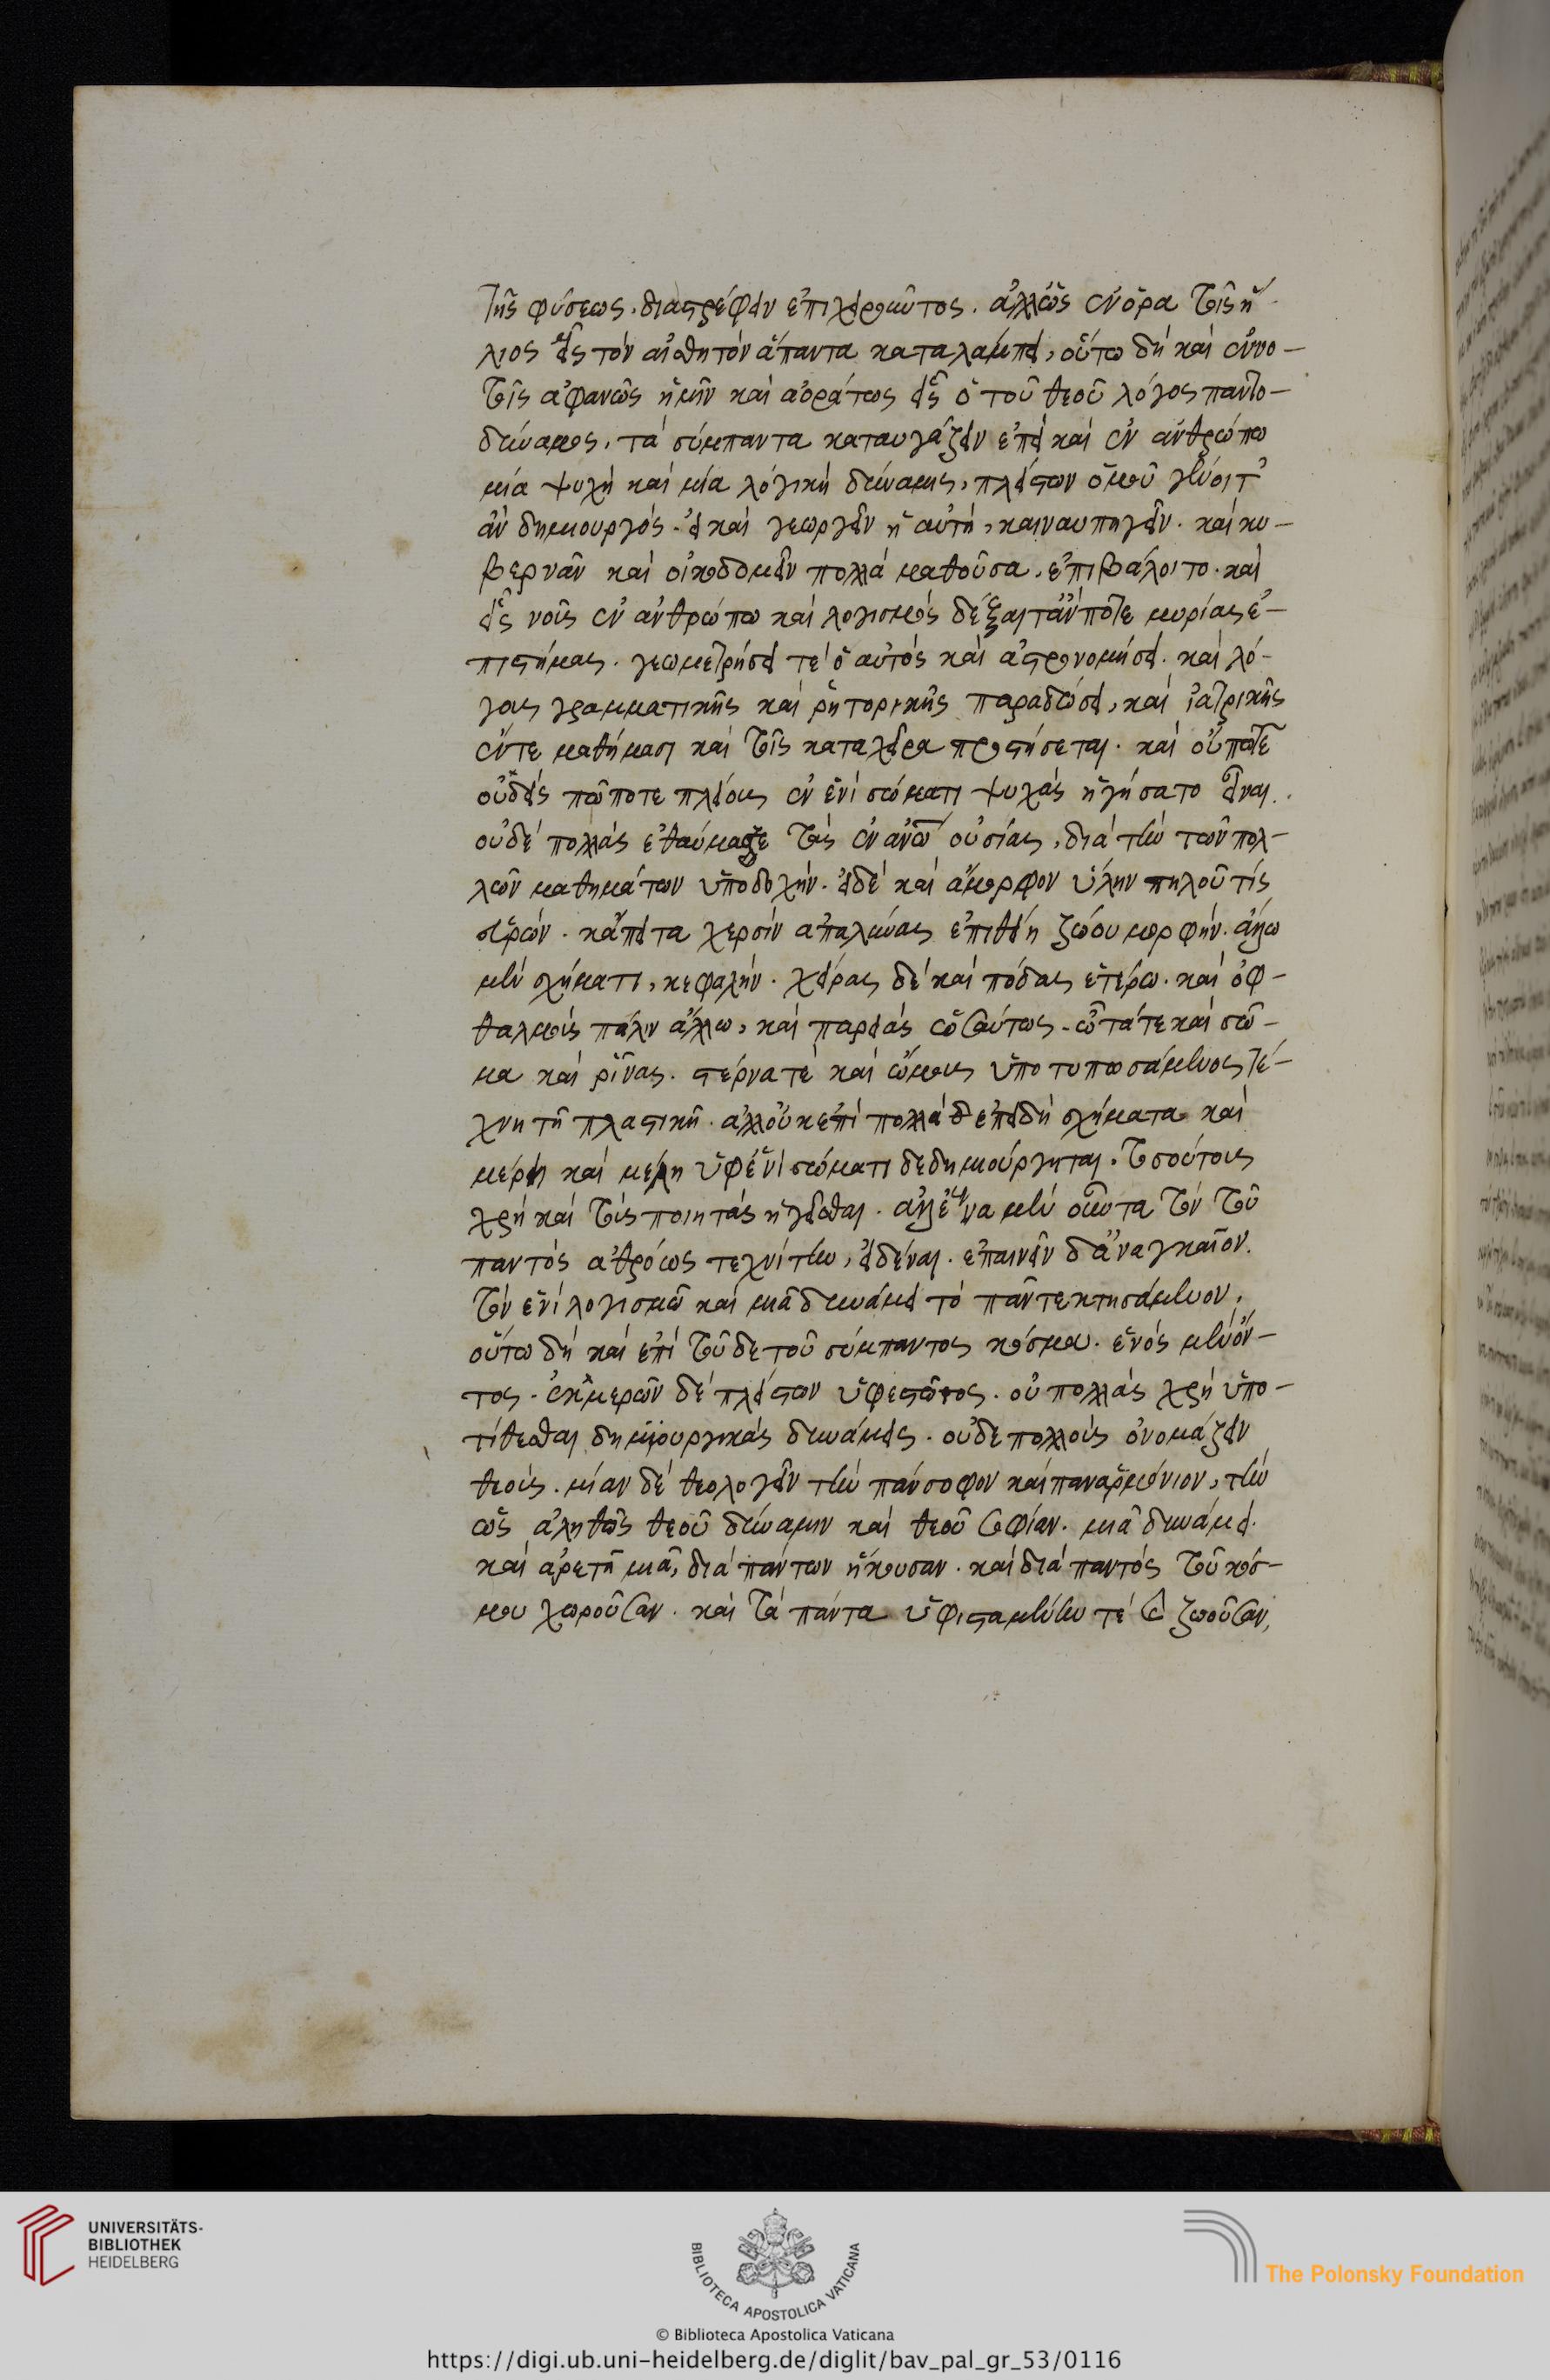 τῆς φύσεως. διαστρέφειν ἐπιχειροῦντος. ἀλλ' ὡς ἐν ὁρατοῖς ἥ-
λιος εἷς τὸν αἰσθητὸν ἅπαντα καταλάμπει, οὕτω δὴ καὶ ἐν νο-
τοῖς ἀφανῶς ἡμῖν καὶ ἀοράτως εἷς ὁ τοῦ θεοῦ λόγος παντο-
δύναμος, τὰ σύμπαντα καταυγάζειν ἐπεὶ καὶ ἐν ἀνθρώπω
μία ψυχὴ καὶ μία λόγικὴ δύναμις, πλείστων ὁμοῦ γένοιτ'
ἂν δημιουργός. εἰ καὶ γεωργεῖν ἡ αὐτὴ, καὶ ναυπηγεῖν. καὶ κυ-
βερνᾶν καὶ οἰκοδομεῖν πολλὰ μαθοῦσα. ἐπιβάλοιτο. καὶ
εἷς νοῦς ἐν ἀνθρώπω καὶ λογισμὸς δέξαιτ' ἄν ποτε μυρίας ἐ-
πιστήμας. γεωμετρήσει τὲ ὁ αὐτὸς καὶ ἀστρονομήσει. καὶ λό-
γους γραμματικῆς καὶ ῥητορικῆς παραδώσει, καὶ ἰατρικῆς
ἔν τε μαθήμασι καὶ τοῖς κατα χεῖρα προστήσεται. καὶ οὔποτε
οὐδεὶς πώποτε πλείους ἐν ἑνὶ σώματι ψυχὰς ἡγήσατο εἶναι.
οὐδὲ πολλὰς ἐθαύμασε τὰς ἐν ἀνω οὐσίας, διὰ τὴν τῶν πολ-
λῶν μαθημάτων ὑποδοχήν. εἰ δὲ καὶ ἄμορφον ὕλην πηλοῦ τίς
εὑρών. κἄπειτα χερσὶν ἁπαλύνας ἐπιθείη ζώου μορφήν. ἄλλω
μὲν σχήματι, κεφαλήν. χεῖρας δὲ καὶ πόδας ἑτέρω. καὶ ὀφ-
θαλμοὺς πάλιν ἄλλω, καὶ παρειὰς ὡσαύτως. ὦτά τε καὶ στό-
μα καὶ ῥῖνας. στέρνα τὲ καὶ ὤμους ὑποτυπωσάμενος τέ-
χνη τῆ πλαστικῆ. ἀλλ' οὐκ ἐπὶ πολλὰ ἐπειδὴ σχήματα καὶ
μέρη καὶ μέλη ὑφ' ἑνὶ σώματι δεδημιούργηται. τοσούτους
χρὴ καὶ τοὺς ποιητὰς ἡγεῖσθαι. ἀλλ' ἕνα μὲν ὄντα τὸν τοῦ
παντὸς ἀθρόως τεχνίτην, εἰδέναι. ἐπαινεῖν δ' ἀναγκαῖον.
τὸν ἑνὶ λογισμῶ καὶ μιᾶ δυνάμει τὸ πᾶν τεκτησάμενον.
οὕτω δὴ καὶ ἐπὶ τοῦδε τοῦ σύμπαντος κόσμου. ἑνὸς μὲν ὄν-
τος. ἐκ μερῶν δὲ πλείστων ὑφεστῶτος. οὐ πολλὰς χρὴ ὑπο-
τίθεσθαι δημιουργικὰς δυνάμεις. οὐδὲ πολλοὺς ὀνομάζειν
θεούς. μίαν δὲ θεολογεῖν τὴν πάνσοφον καὶ παναρμόνιον, τὴν
ὡς ἀληθῶς θεοῦ δύναμιν καὶ θεοῦ σοφίαν. μιᾶ δυνάμει.
καὶ ἀρετῆ μιᾶ, διὰ πάντων ἥκουσαν. καὶ διὰ παντὸς τοῦ κόσ-
μου χωροῦσαν. καὶ τὰ πάντα ὑφισταμένην τὲ καὶ ζωοῦσαν,
UNIVERSITÄTS-
BIBLIOTHEK
HEIDELBERG
BIBLIOTECA APOSTOLICA VATICANA
The Polonsky Foundation
© Biblioteca Apostolica Vaticana
https://digi.ub.uni-heidelberg.de/diglit/bav_pal_gr_53/0116